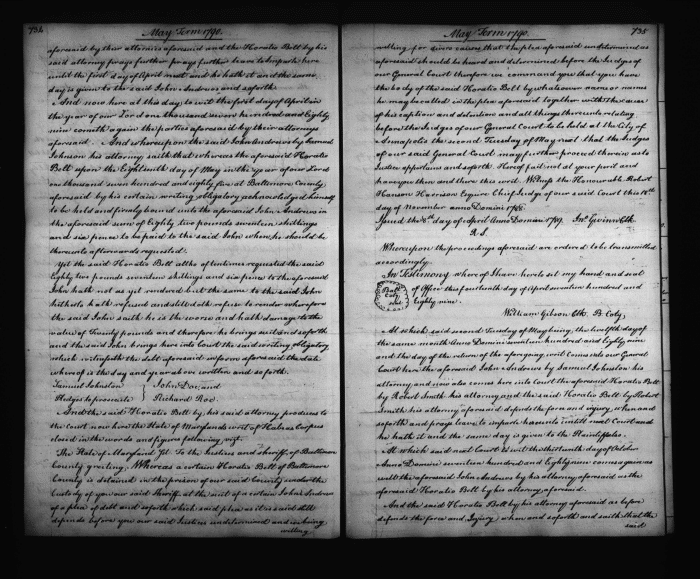 734
May Term 1790.
aforesaid by their attornies aforesaid and the Horatio Bolt by his
said attorney prays further prays further leave to imparle here
until the first day of April next and he hath it and the same
day is given to the said John Andrews and soforth
And now here at this day to wit the first day of April in
the year of our Lord one thousand seven hundred and Eighty
nine cometh again the parties aforesaid by their attorneys
aforesaid. And whereupon the said John Andrews by Samuel
Johnson his attorney saith that whereas the aforesaid Horatio
Bolt upon the Eighteenth day of May in the year of our Lord
one thousand seven hundred and eighty five at Baltimore County
aforesaid by his certain writing obligatory acknowledged himself
to be held and firmly bound unto the aforesaid John Andrews in
the aforesaid sum of Eighty two pounds seventeen shillings
and six pence to be paid to the said John when he should be
thereunto afterwards requested.
Yet the said Horatio Bolt altho oftentimes requested the said
Eighty two pounds seventeen shillings and six pence to the aforesaid
John hath not as yet rendered but the same to the said John
hitherto hath refused and still doth refuse to render wherefore
the said John saith he is the worse and hath damage to the
value of Twenty pounds and therefore he brings suit and soforth
and the said John brings here into Court the said writing obligatory
which witnesseth the debt aforesaid in form aforesaid the date
whereof is the day and year above written and soforth.
Samuel Johnston } John Doe and
Pledges to prosecute } Richard Roe.
And the said Horatio Bolt by his said attorney produces to
the Court now here the State of Marylands writ of Habeas Corpus
closed in the words and figures following vizt.
The State of Maryland sst. To the Justices and sheriff of Baltimore
County greeting. Whereas a certain Horatio Bolt of Baltimore
County is detained in the prison of our said County under the
Custody of you our said Sheriff at the suit of a certain John Andrews
of a plea of debt and soforth which said plea as it is said still
depends before you our said Justices undetermined and we being
willing
May Term 1790.
735
willing for divers causes that the plea aforesaid undetermined as
aforesaid should be heard and determined before the Judges of
our General Court therefore we command you that you have
the body of the said Horatio Bolt by whatsoever name or names
he may be called in the plea aforesaid together with the cause
of his caption and detention and all things thereunto relating
before the Judges of our General Court to be held at the City of
Annapolis the second Tuesday of May next that the Judges
of our said General Court may further proceed therein as to
Justice appertains and soforth. Hereof fail not at your peril and
have you then and there this writ. Witness the Honourable Robert
Hanson Harrison Esquire Chief Judge of our said Court this 18th
day of November anno Domini 1788.
Issued the 8th day of April Anno Domini 1789. Jno. Gwinn Clk
R S.
Whereupon the proceedings aforesaid are ordered to be transmitted
accordingly.
In Testimony whereof I have hereto set my hand and seal
of Office this sixteenth day of April seventeen hundred and
eighty nine.
Balt
Coty
William Gibson Clk. B. Coty.
At which said second Tuesday of May being the twelfth day of
the same month Anno Domini seventeen hundred and eighty nine
and the day of the return of the aforegoing writ comes into our General
Court here the aforesaid John Andrews by Samuel Johnston his
attorney, and now also comes here into Court the aforesaid Horatio Bolt
by Robert Smith his attorney and the said Horatio Bolt by Robert
Smith his attorney aforesaid defends the force and injury, when and
soforth and prays leave to imparle hereunto until next Court and
he hath it and the same day is given to the Plaintiff also.
At which said next Court to wit the thirteenth day of October
Anno Domini seventeen hundred and Eighty nine comes again as
well the aforesaid John Andrews by his attorney aforesaid as the
aforesaid Horatio Bolt by his attorney aforesaid.
And the said Horatio Bolt by his attorney aforesaid as before
defends the force and Injury when and soforth and saith that the
said